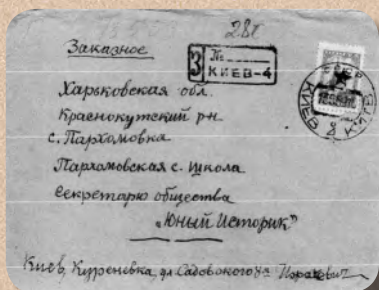 28к
Заказное
З
№
КИЕВ-4
Харьковская обл.
Краснокутский рн.
с. Пархомовка
Пархомовская с. школа
Секретарю общества
„Юный Историк"
Киев, Куреневка, ул. Садовского